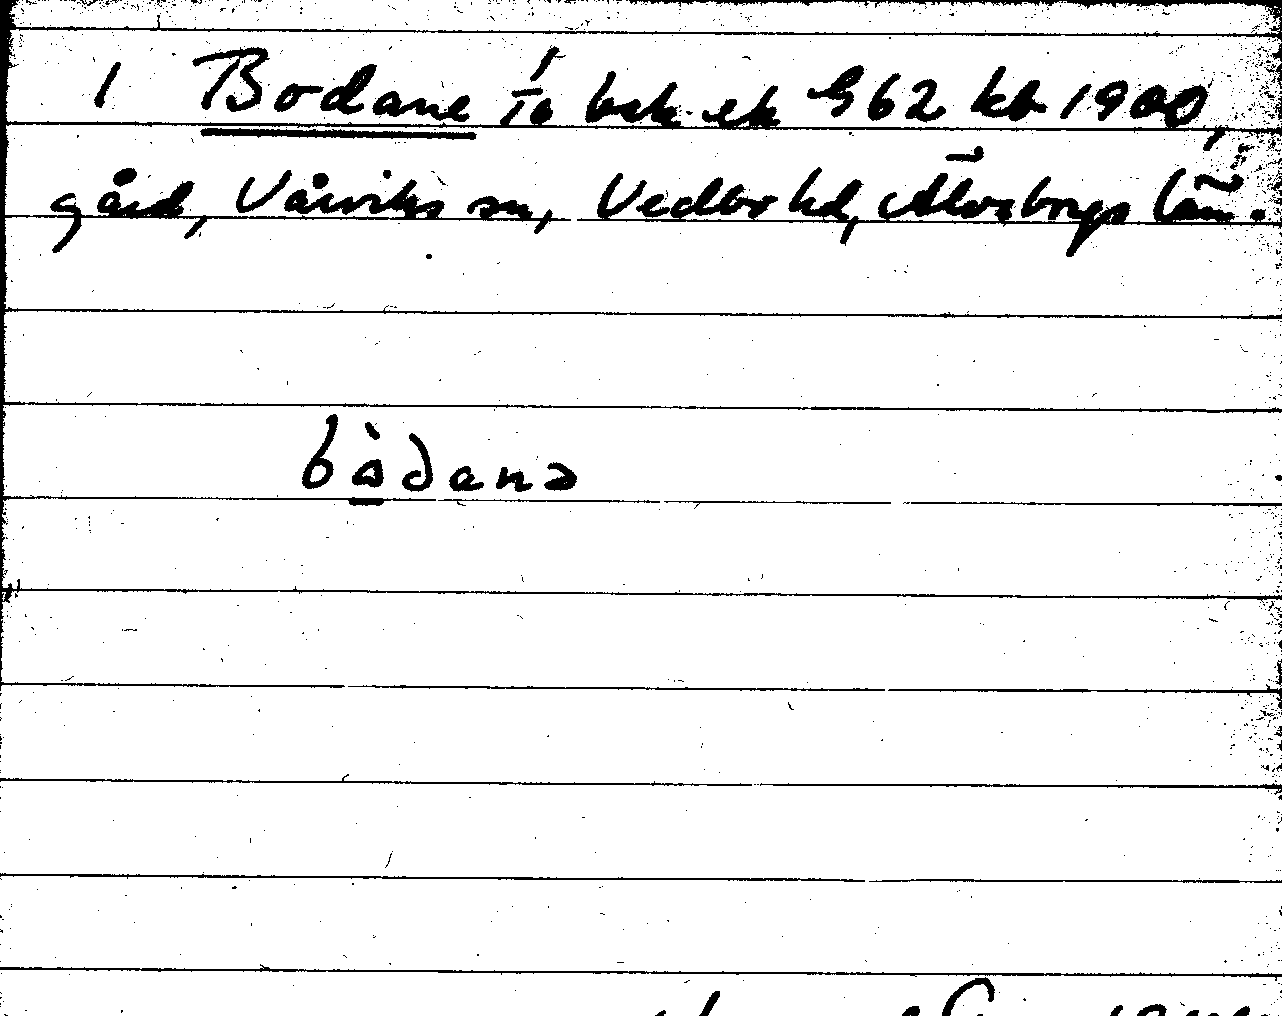 1 Bodane 1/16 bek ek G62 kb 1900,
gård, Vårviks sn, Vedbo hd, Älvsborgs län.
bòdanə